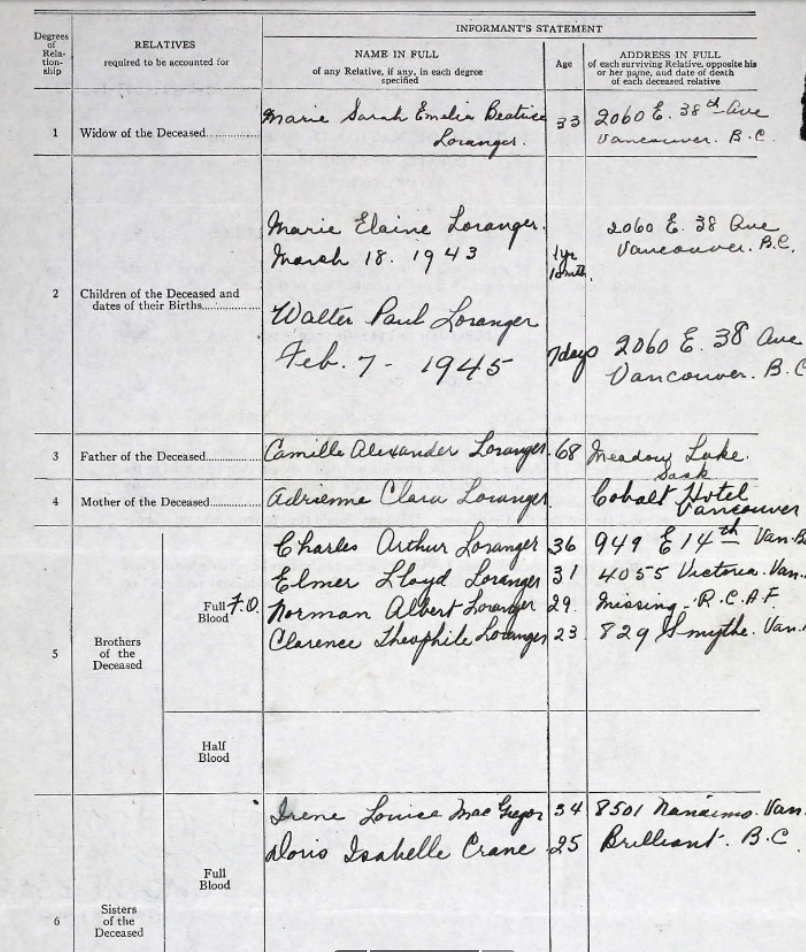 INFORMANT'S STATEMENT
Degrees
of
Rela-
tion-
ship
RELATIVES
required to be accounted for
NAME IN FULL
of any Relative, if any, in each degree
specified
Age
ADDRESS IN FULL
of each surviving Relative, opposite his
or her name, and date of death
of each deceased relative
1 Widow of the Deceased............... Marie Sarah Emelia Beatrice 33 2060 E. 38th Ave
Loranger. Vancouver. B.C.
Marie Elaine Loranger. 2060 E. 38 Ave
March 18. 1943 1yr Vancouver. B.C.
10mth.
2 Children of the Deceased and
dates of their Births...............
Walter Paul Loranger
Feb. 7 - 1945 7days 2060 E. 38 Ave
Vancouver. B.C
3 Father of the Deceased............... Camille Alexander Loranger. 68 Meadow Lake.
Sask
4 Mother of the Deceased............... Adrienne Clara Loranger Cobalt Hotel
Vancouver
5 Brothers
of the
Deceased
Full
Blood
F.O.
Charles Arthur Loranger 36 949 E 14th Van. B
Elmer Lloyd Loranger 31 4055 Victoria. Van.
Norman Albert Loranger 29. Missing - R.C.A.F.
Clarence Theophile Loranger 23 829 Smythe. Van.
Half
Blood
6 Sisters
of the
Deceased
Full
Blood
Irene Louise MacGregor 34 8501 Nanaimo. Van.
Doris Isabelle Crane 25 Brilliant. B.C.